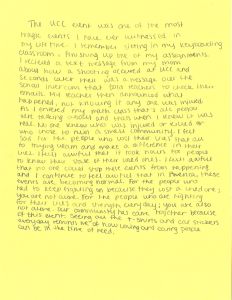 The UCC event was one of the most
tragic events I have ever witnessed in
my life time. I remember sitting in my keyboarding
classroom finishing up one of my assignments.
I recieved a text message from my mom
about how a shooting occured at UCC and
seconds later their was a message over the
school intercom that told teachers to check their
emails. My teacher then explained what
happened, not knowing if any one was injured.
As I entered my math class that's all people
were talking about and thats when I knew it was
real. No one knew who was injured or killed or
who. There is such a small community. I feel
for the people who lost their lives just
trying to learn and make a difference in their
lives. I feel awful that it took hours for people
to know the state of their loved ones. I feel awful
that no one could stop these events from happening
and I continue to feel awful that in America, these
events are becoming normal. For the people who
had to keep fighting on because they lost a loved one;
you are not alone. For the people who are fighting
for their lives and strength everyday; you are also
not alone. Our community has came together because
of this event. Seeing all the t-shirts and car stickers
everyday reminds me of how loving and caring people
can be in the time of need.